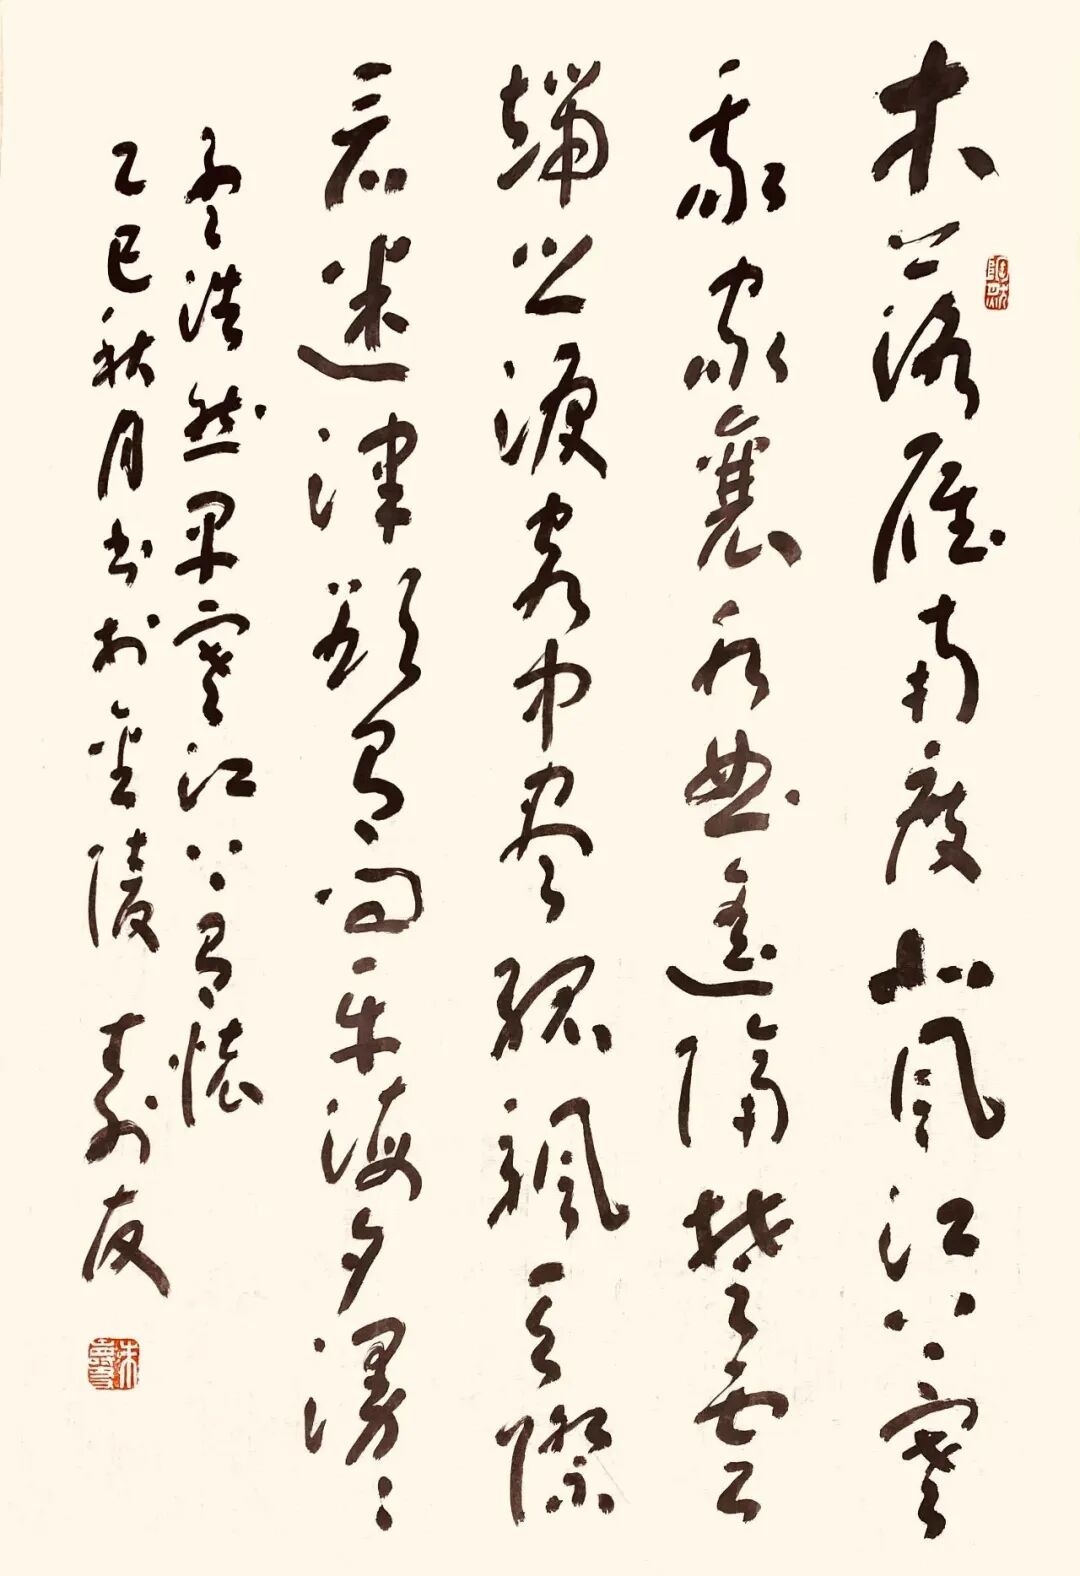 木落雁南度北風江上寒
我家襄水曲遙隔楚雲
端鄉淚客中盡孤帆天際
看迷津欲有問平海夕漫漫
孟浩然早寒江上有懷
乙巳秋月書於金陵 壽友
朱壽友